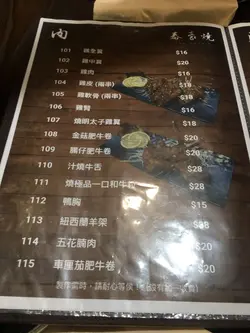 肉 泰家燒
101 雞全翼 $16
102 雞中翼 $18
103 雞肉 $16
104 雞皮 (兩串) $16
105 雞軟骨 (兩串) $16
106 雞腎 $16
107 燒明太子雞翼 $20
108 金菇肥牛卷 $20
109 腸仔肥牛卷 $20
110 汁燒牛舌 $28
111 燒極品一口和牛 $28
112 鴨胸 $15
113 紐西蘭羊架 $28
114 五花腩肉 $20
115 車厘茄肥牛卷 $20
製作需時,請耐心等侯